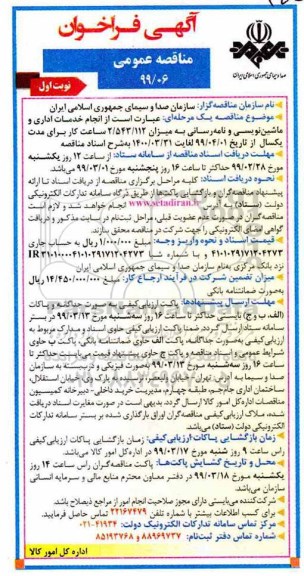 آگهی فراخوان
مناقصه عمومی
۹۹/۰۶
نوبت اول
صدا و سیمای جمهوری اسلامی ایران
نام سازمان مناقصه‌گزار: سازمان صدا و سیمای جمهوری اسلامی ایران
موضوع مناقصه یک مرحله‌ای: عبارت است از انجام خدمات اداری و
ماشین‌نویسی و نامه‌رسانی به میزان ۲/۵۴۳/۱۱۲ ساعت کار برای مدت
یکسال از تاریخ ۹۹/۰۴/۰۱ لغایت ۱۴۰۰/۰۳/۳۱ به‌شرح اسناد مناقصه
مهلت دریافت اسناد مناقصه از سامانه ستاد: از ساعت ۱۲ روز یکشنبه
مورخ ۹۹/۰۲/۲۸ حداکثر تا ساعت ۱۶ روز پنجشنبه مورخ ۹۹/۰۳/۰۱ می‌باشد.
نحوه دریافت اسناد: کلیه مراحل برگزاری مناقصه از دریافت اسناد تا ارائه
پیشنهاد مناقصه‌گران و بازگشایی پاکتها از طریق درگاه سامانه تدارکات الکترونیکی
دولت (ستاد) www.setadiran.ir انجام خواهد شد و لازم است
مناقصه‌گران در صورت عدم عضویت قبلی، مراحل ثبت‌نام در سایت مذکور و دریافت
گواهی امضای الکترونیکی را جهت شرکت در مناقصه محقق سازند.
قیمت اسناد و نحوه واریز وجه: مبلغ ۱/۰۰۰/۰۰۰ ریال به حساب جاری
نزد بانک مرکزی به‌نام سازمان صدا و سیمای جمهوری اسلامی ایران
میزان تضمین شرکت در فرآیند ارجاع کار: مبلغ ۱۴/۴۵۰/۰۰۰/۰۰۰ ریال
به‌صورت ضمانتنامه بانکی
مهلت ارسال پیشنهادها: پاکت ارزیابی کیفی به صورت جداگانه و پاکات
(الف، ب و ج) بایستی حداکثر تا ساعت ۱۶ روز سه‌شنبه مورخ ۹۹/۰۳/۱۳ در بستر
سامانه ستاد ارسال گردد. ضمنا پاکت ارزیابی کیفی حاوی اسناد و مدارک مربوط به
ارزیابی کیفی به‌صورت جداگانه، پاکت الف حاوی ضمانتنامه بانکی، پاکت ب حاوی
شرایط عمومی و اسناد مناقصه و پاکت ج حاوی پیشنهاد قیمت می‌بایست حداکثر تا
ساعت ۱۶ روز سه شنبه مورخ ۹۹/۰۳/۱۳ به‌صورت فیزیکی و دربسته به سازمان
صدا و سیما به آدرس: تهران، خیابان ولیعصر، نرسیده به پارک وی، خیابان استقلال،
ساختمان اداری جام‌جم، طبقه چهارم، مدیریت خرید داخلی - دبیرخانه کمیسیون
مناقصات اداره‌کل امور کالا ارسال گردد. بدیهی است در صورت مغایرت اسناد دریافت
شده، ملاک ارزیابی کیفی مناقصه‌گران اوراق بارگذاری شده بر بستر سامانه تدارکات
الکترونیکی دولت (ستاد) می‌باشد.
زمان بازگشایی پاکات ارزیابی کیفی: زمان بازگشایی پاکات ارزیابی کیفی
راس ساعت ۹ روز شنبه مورخ ۹۹/۰۳/۱۷ در اداره کل امور کالا می‌باشد.
محل و تاریخ گشایش پاکت‌ها: پاکت مناقصه‌گران راس ساعت ۱۴ روز
یکشنبه مورخ ۹۹/۰۳/۱۸ در دفتر معاون محترم منابع مالی و سرمایه انسانی
سازمان می‌باشد.
شرکت‌کننده می‌بایستی دارای مجوز صلاحیت انجام امور از مراجع ذیصلاح باشد.
برای کسب اطلاعات بیشتر با شماره تلفن ۲۲۱۶۷۴۷۹ تماس حاصل فرمایید.
مرکز تماس سامانه تدارکات الکترونیک دولت: ۴۱۹۳۴-۰۲۱
شماره تماس دفتر ثبت‌نام: ۸۸۹۶۹۷۳۷ و ۸۵۱۹۳۷۶۸
اداره کل امور کالا